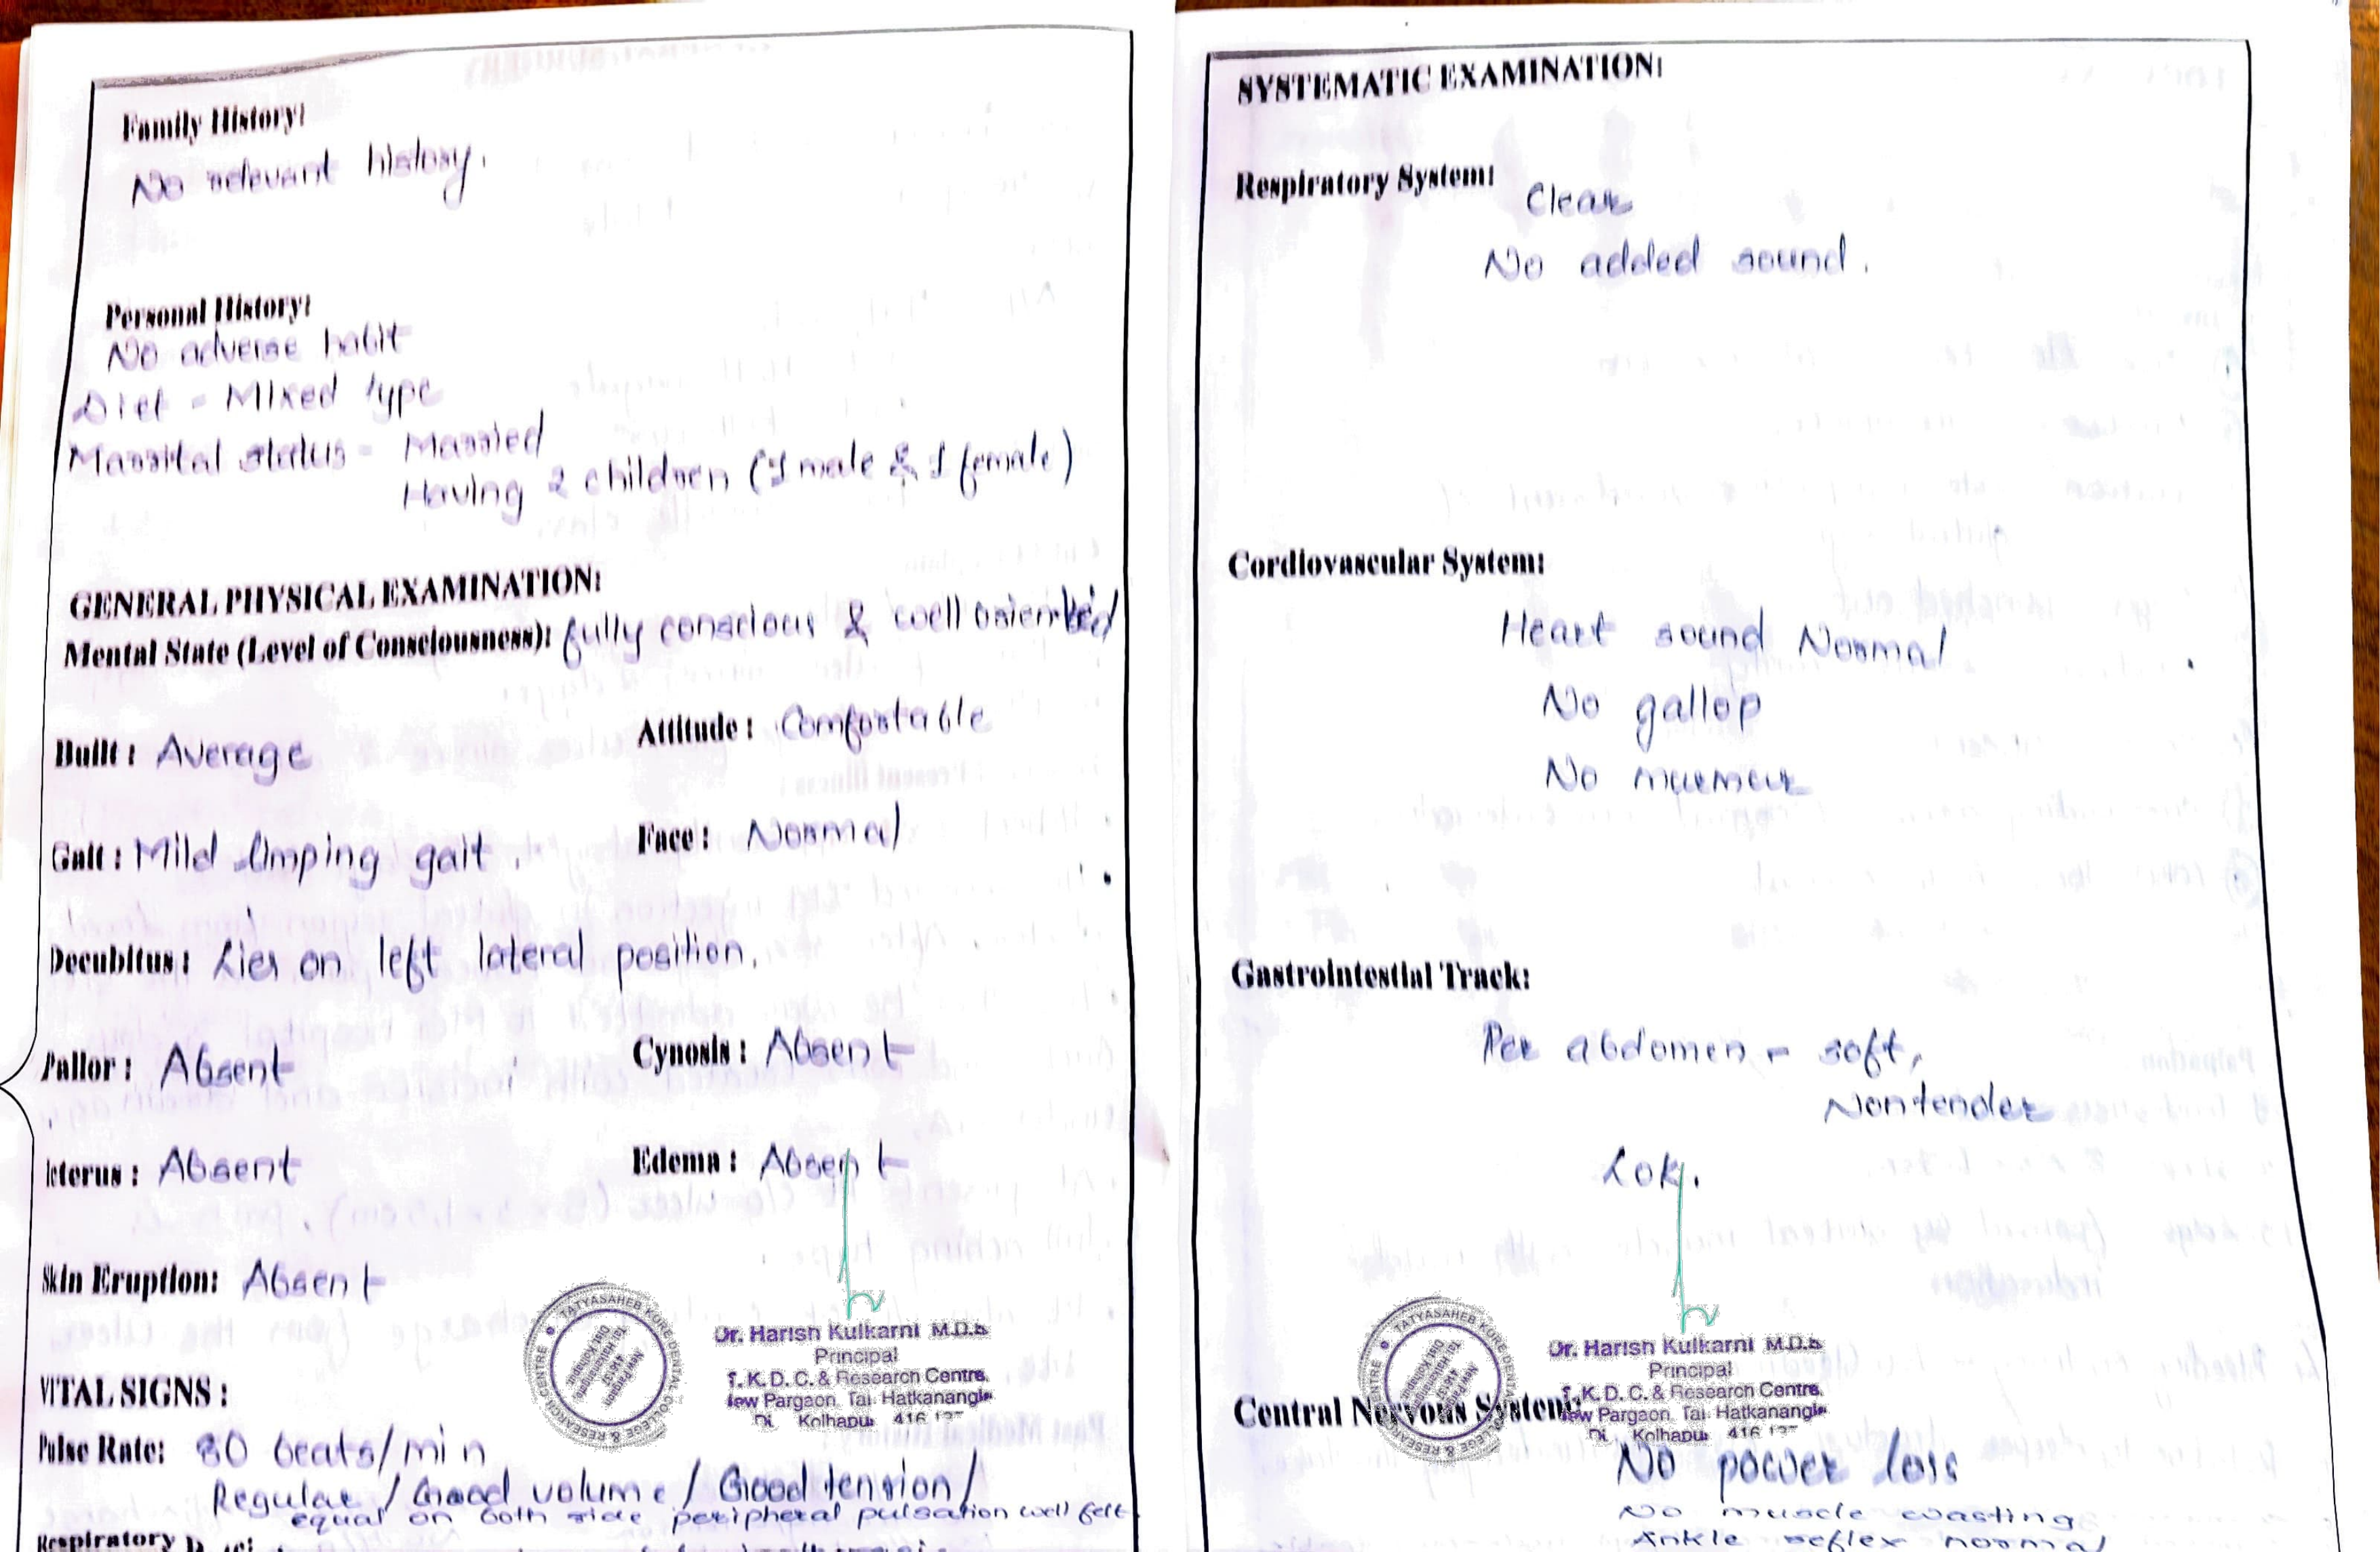 Family History:
No relevant history.
Personal History:
No adverse habit
Diet - Mixed type
Marrital status - Married
Having 2 children (1 male & 1 female)
GENERAL PHYSICAL EXAMINATION:
Mental State (Level of Consciousness): fully conscious & well oriented
Built : Average
Attitude : Comfortable
Gait : Mild limping gait.
Face : Normal
Decubitus : Lies on left lateral position.
Pallor : Absent
Cynosis : Absent
Icterus : Absent
Edema : Absent
Skin Eruption: Absent
TATYASAHEB KORE DENTAL COLLEGE & RESEARCH CENTRE
Dr. Harish Kulkarni M.D.S
Principal
T. K. D. C. & Research Centre,
New Pargaon, Tal. Hatkanangle
Di. Kolhapur 416 137
VITAL SIGNS :
Pulse Rate: 80 beats/min
Regular / Good volume / Good tension /
equal on both side peripheral pulsation well felt
Respiratory
SYSTEMATIC EXAMINATION:
Respiratory System:
Clear
No added sound.
Cordiovascular System:
Heart sound Normal
No gallop
No murmur
Gastrointestial Track:
Per abdomen - soft,
Nontender
TATYASAHEB KORE DENTAL COLLEGE & RESEARCH CENTRE
Dr. Harish Kulkarni M.D.S
Principal
T. K. D. C. & Research Centre,
New Pargaon, Tal. Hatkanangle
Di. Kolhapur 416 137
Central Nervous System:
No power loss
No muscle wasting
Ankle reflex normal